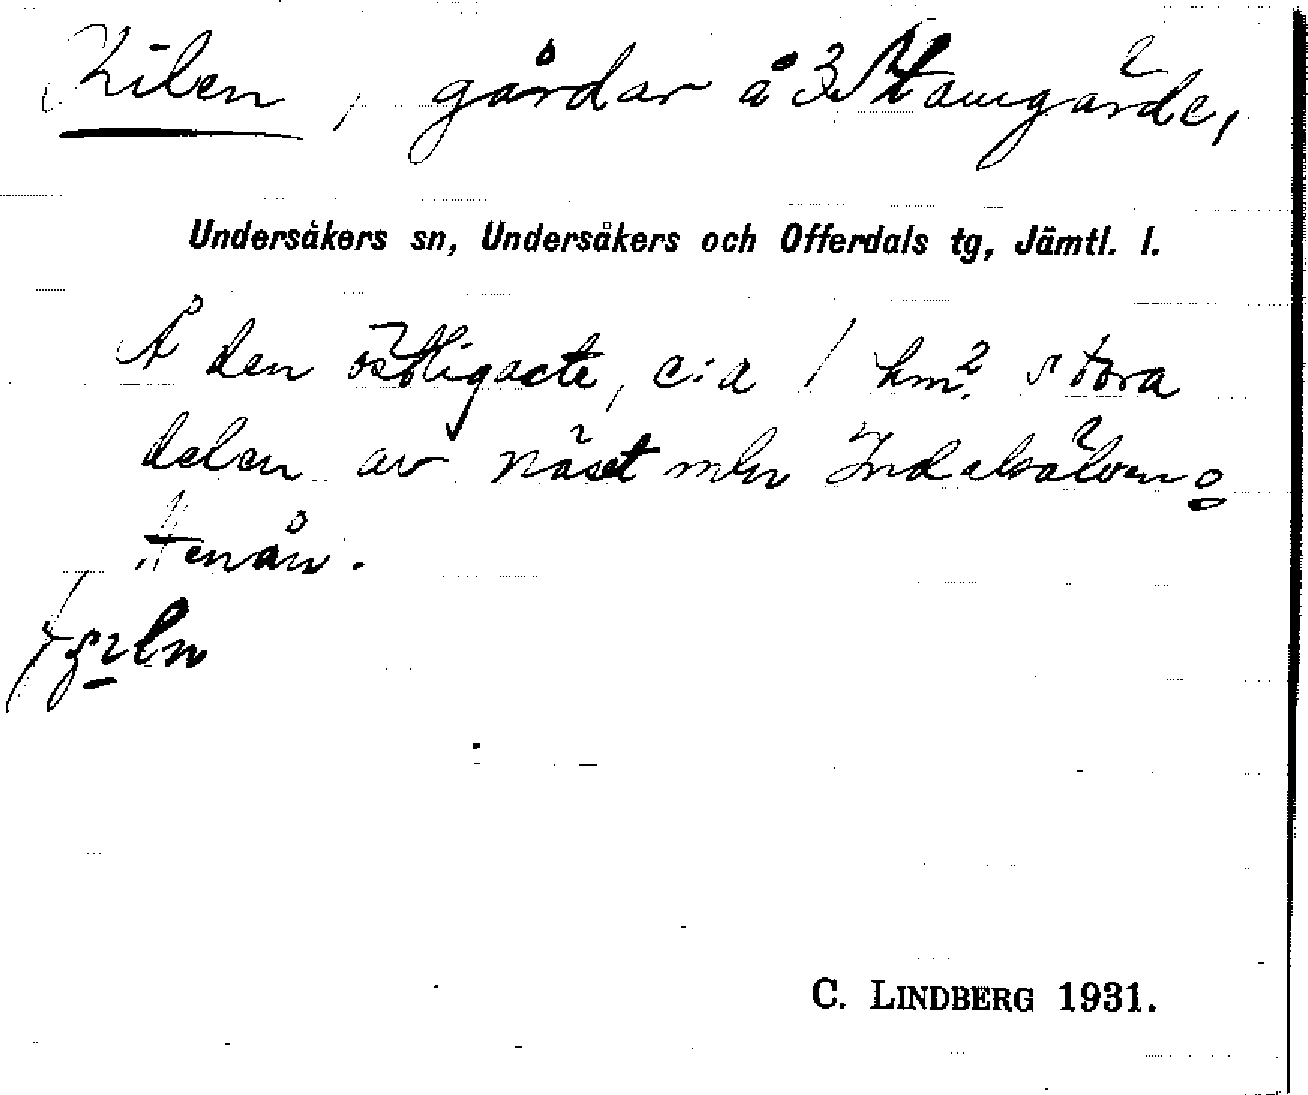 Kilen, gårdar å 3 Stamgärde,
Undersåkers sn, Undersåkers och Offerdals tg, Jämtl. l.
Å den östligaste, c:a 1 km². stora
delen av näset mln Indalsälven o
Henån.
C. LINDBERG 1931.